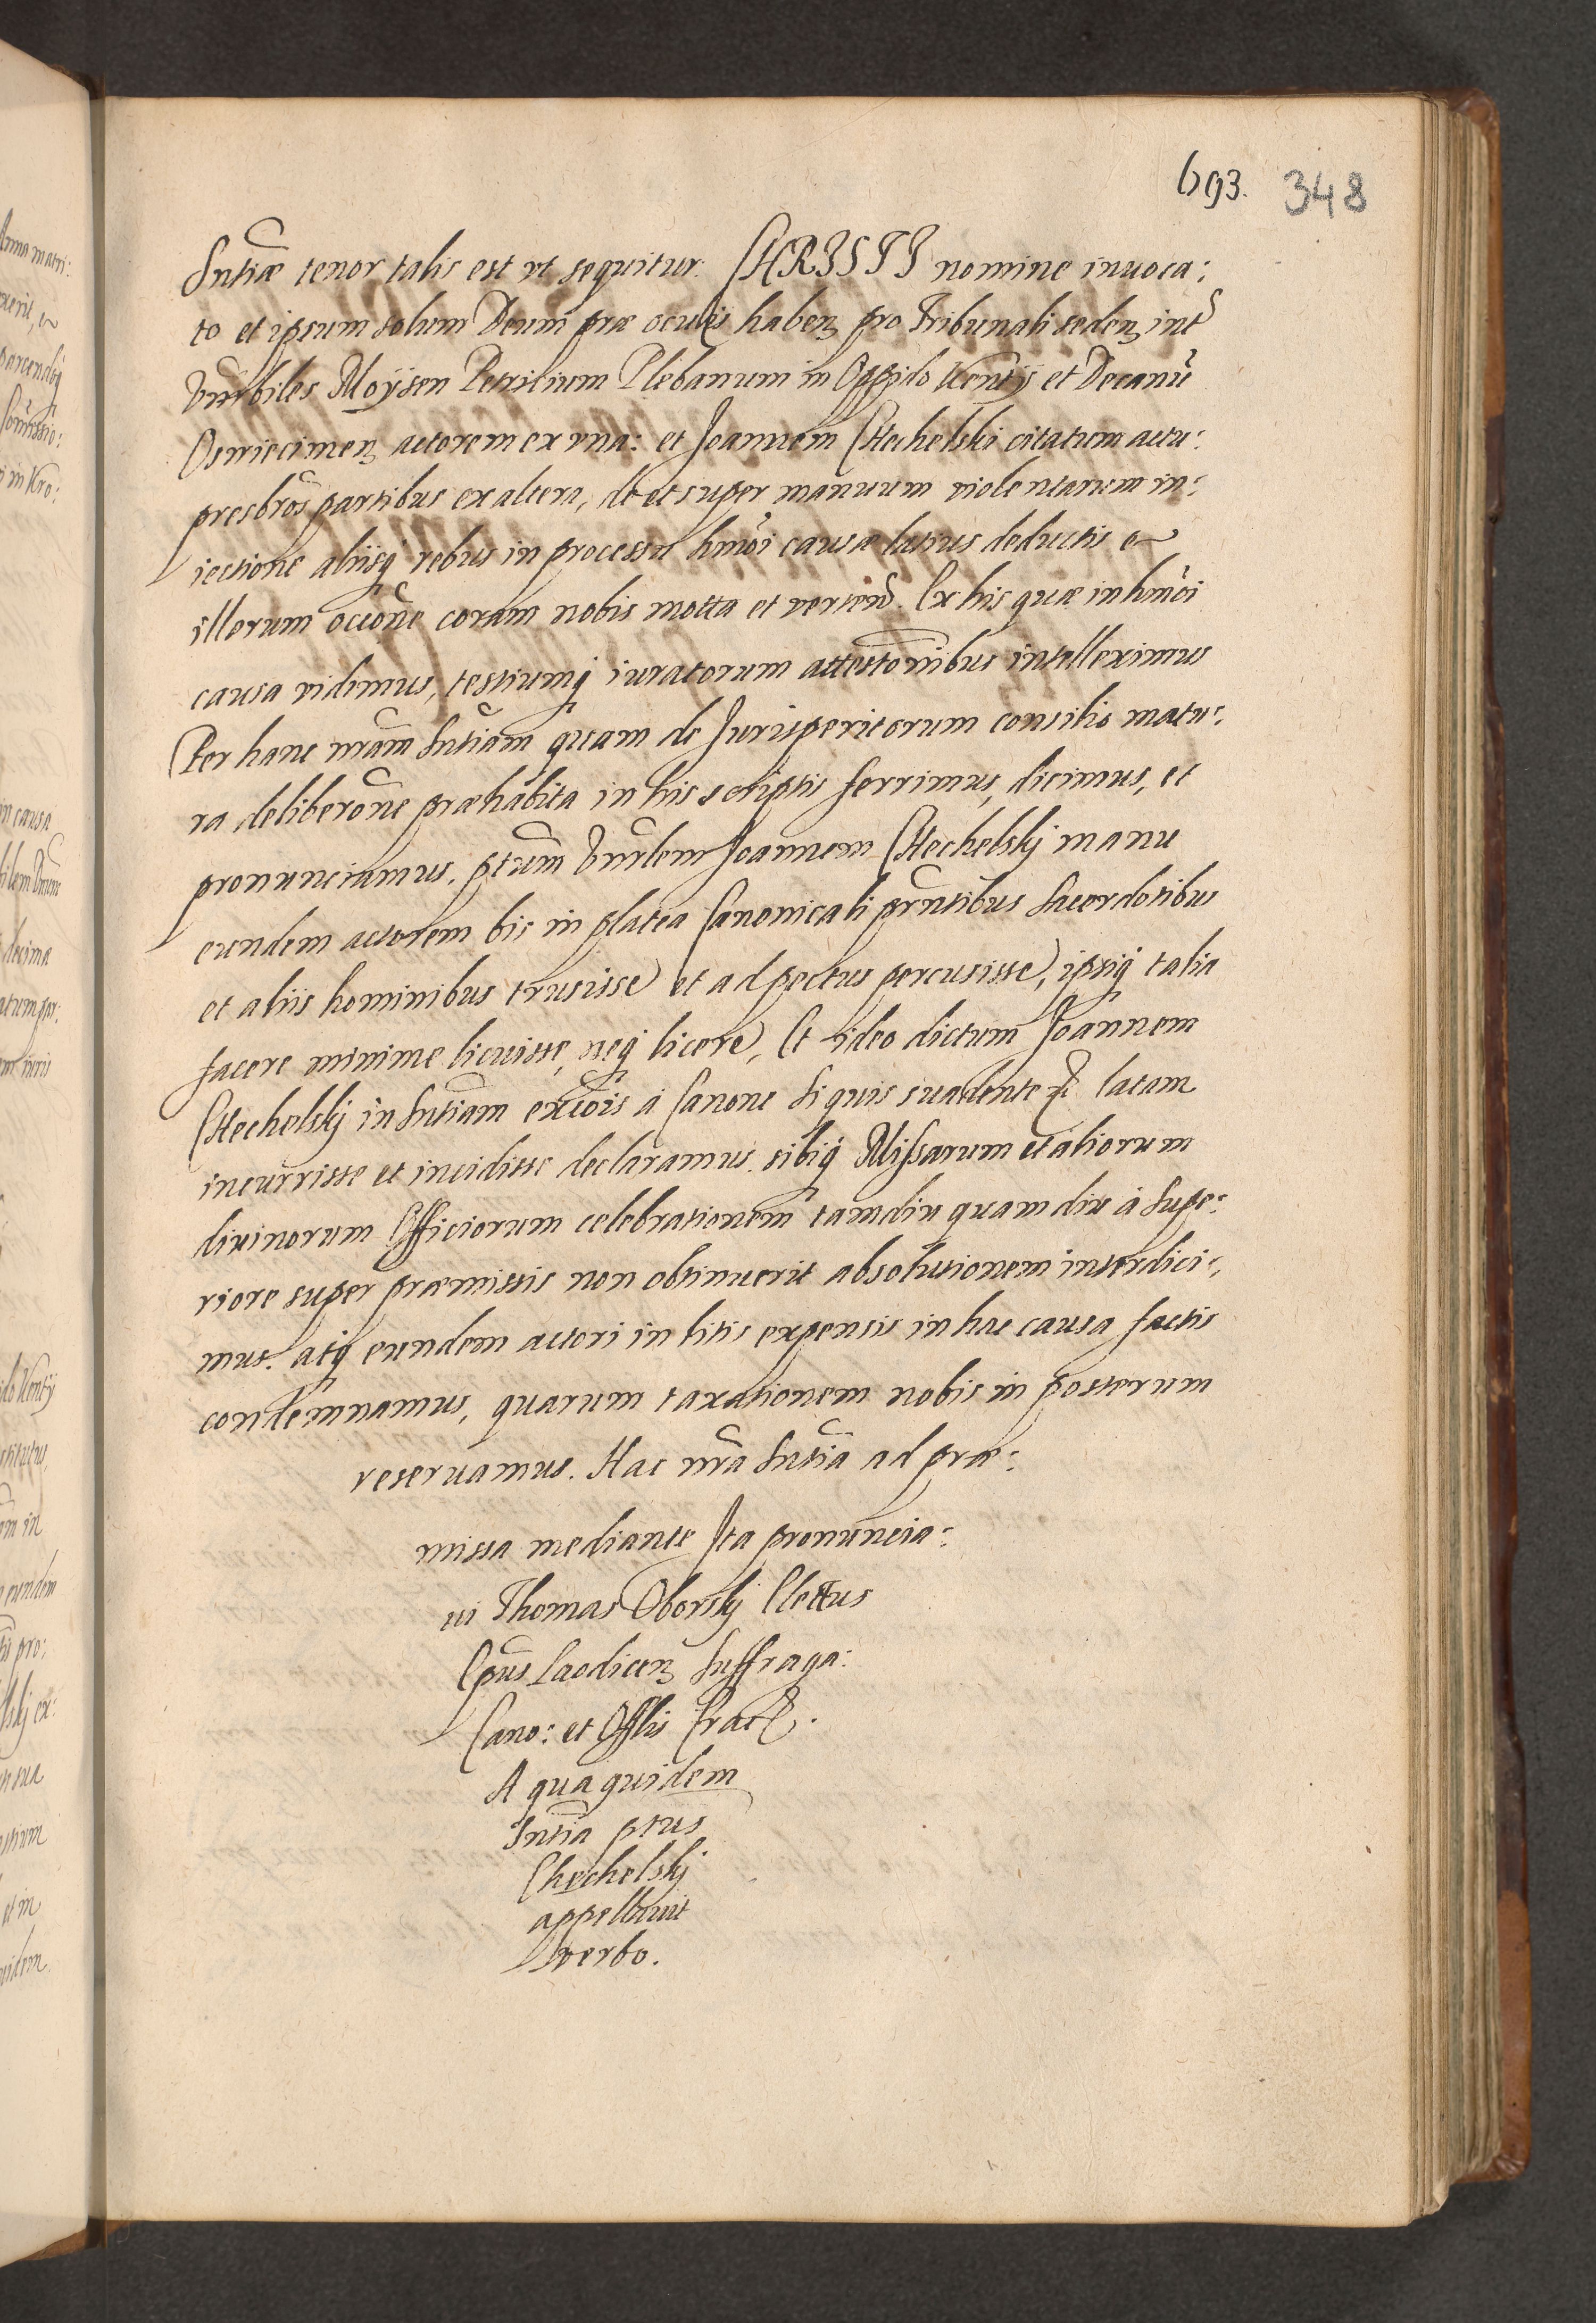 693. 348
Sntiæ tenor talis est vt sequitur. CHRISTI nomine inuoca:
to et ipsum solum Deum præ oculis habenz pro Tribunali sedenz int
Vnrbiles Moÿsen Petricium Plebanum in Oppido Kentÿ et Decanũ
Oswiecimenz actorem ex vna: et Joannem Chechelski citatum actu:
presbrõs partibus ex altera, de et super manuum violentarum in:
iectione aliisq rebus in processu hmõi causæ latius deductis et
illorum occõne coram nobis motta et verten. Ex his quæ in hmõi
causa vidimus, testiumq iuratorum attestõnibus intelleximus
Per hanc nrãm Sntiam quam de Jurisperitorum consilio matu:
ra deliberõne præhabita in his scriptis ferrimus, dicimus, et
pronunciamus. ptum Vnrlem Joannem Chechelskj manu
eundem actorem bis in platea Canonicali prntibus Sacerdotibus
et aliis hominibus trusisse et ad pectus percusisse, ipsiq talia
facere minime licuisse, neq licere, Et ideo dictum Joannem
Chechelskj in Sntiam excõis à Canone Si quis suadente latam
incurrisse et incidisse declaramus. sibiq Missarum et aliorum
diuinorum Officiorum celebrationem tamdiu quam diu à Supe:
riore super præmissis non obtinuerit absolutionem interdici:
mus. atq eundem actori in litis expensis in hac causa factis
condemnamus, quarum taxationem nobis in posterum
reseruamus. Hac nrã Sntia ad præ:
missa mediante Ita pronuncia:
ui Thomas Oborskj Elettus
Epus Laodicenz Suffraga:
Cano: et Offlis Crac.
A qua quidem
Sntia ptus
Chechelskj
appellauit
verbo.